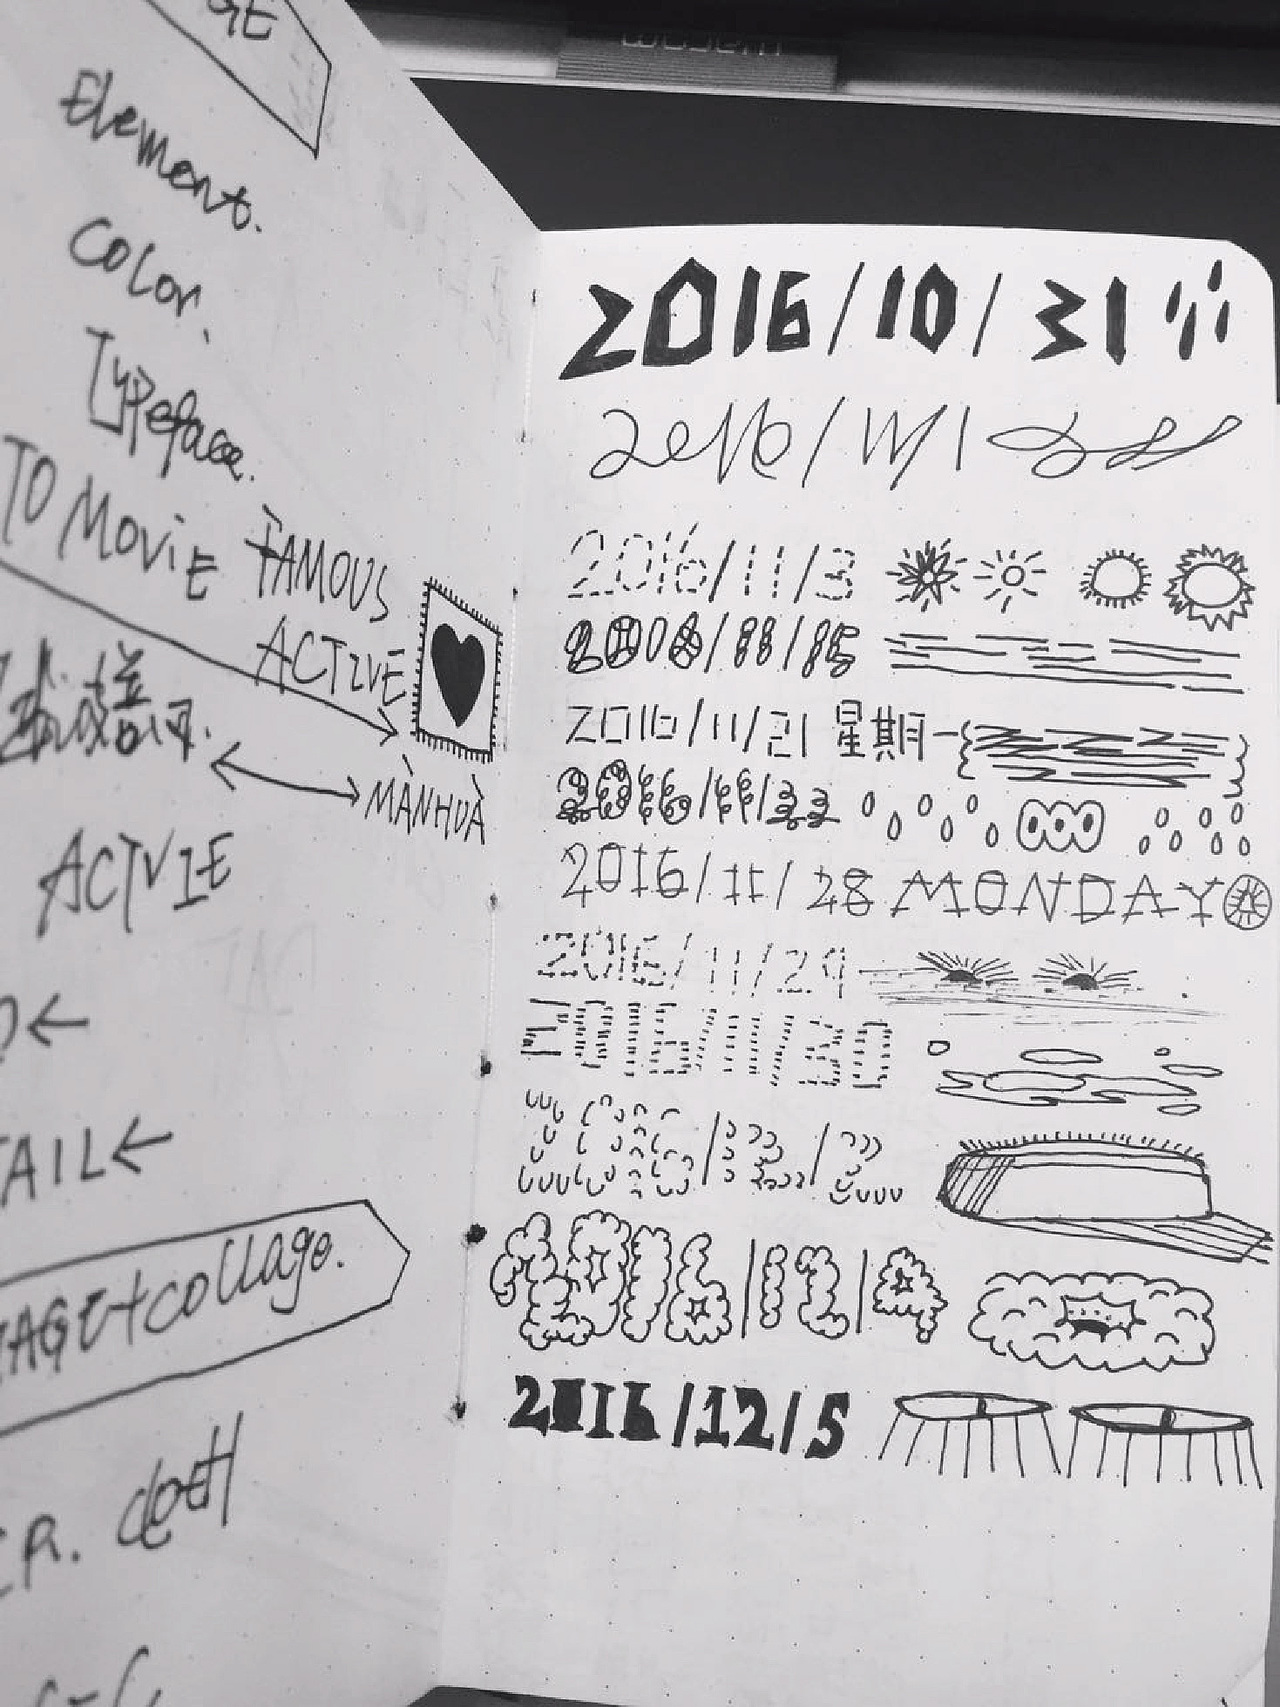 Element.
Color.
Typeface.
TO MOViE FAMOUS
ACTIVE
MÀNHUÀ
ACTVIE
TAIL←
+collage.
2016/10/31
2016/11/1
2016/11/3
2016/11/15
2016/11/21 星期一
2016/11/22
2016/11/28 MONDAY
2016/11/29
2016/11/30
2016/12/2
2016/12/4
2016/12/5